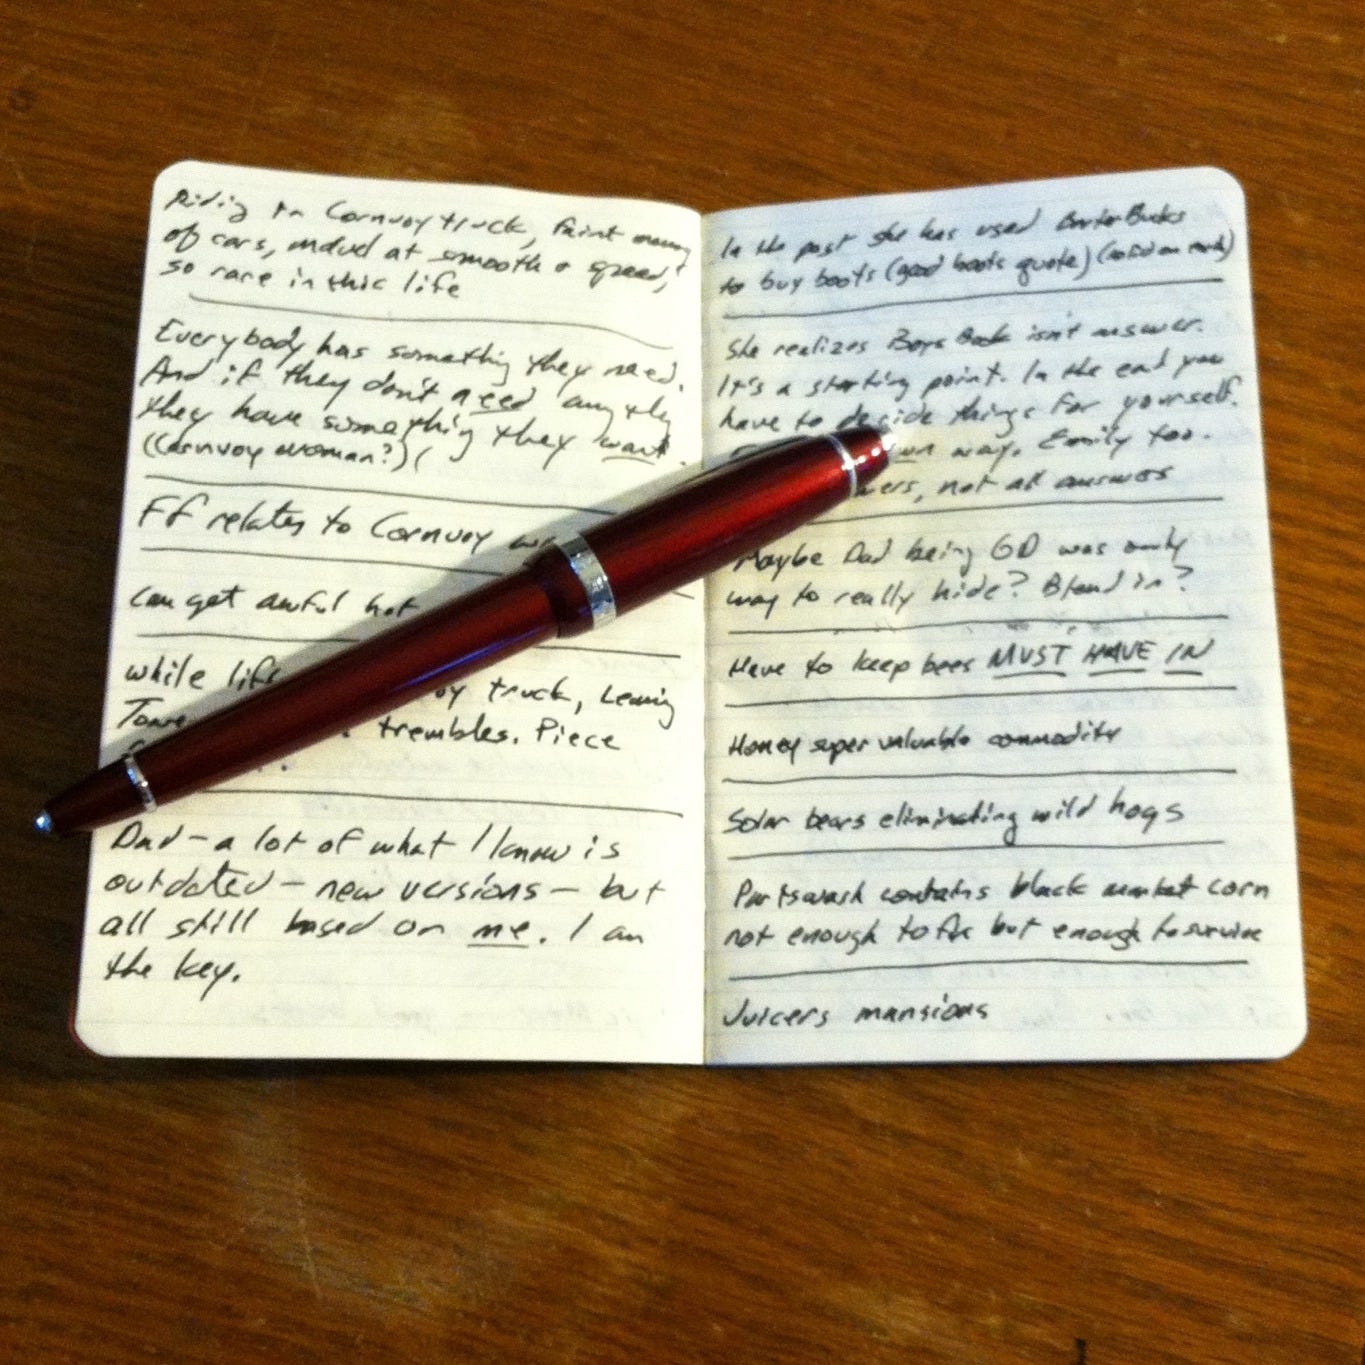 Riding in Cornvoy truck, faint memory
of cars, moved at smooth speed,
so rare in this life
Everybody has something they need.
And if they don't need anything
they have something they want.
(Cornvoy woman?)
FF relates to Cornvoy
can get awful hot
while
truck, leaning
trembles. Piece
Dad - a lot of what I know is
outdated - new versions - but
all still based on me. I am
the key.
In the past she has used BarterBucks
to buy boots (good boots quote)
She realizes Boys Book isn't answer.
It's a starting point. In the end you
have to decide things for yourself.
own way. Emily too.
not all answers
Maybe Dad being GD was only
way to really hide? Blend in?
Have to keep bees MUST HAVE IN
Honey super valuable commodity
Solar bears eliminating wild hogs
contains black market corn
not enough to but enough to survive
Juicers mansions